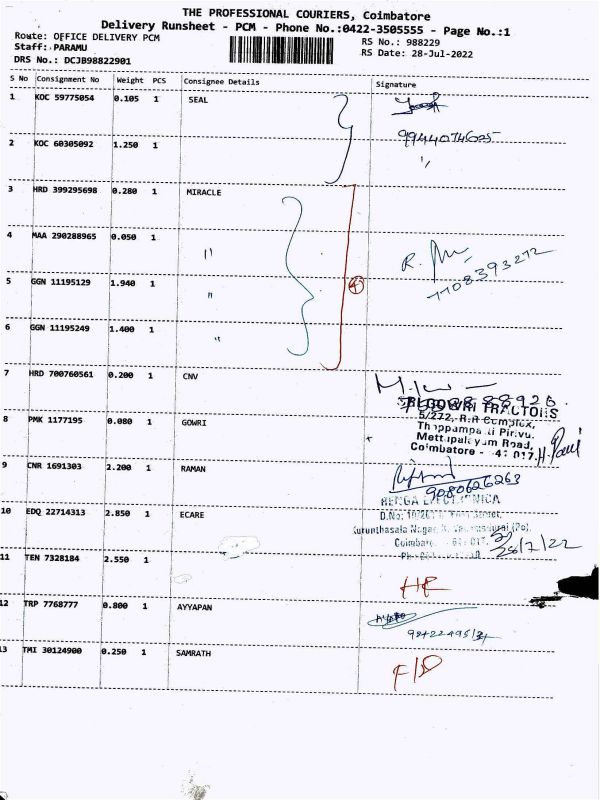 THE PROFESSIONAL COURIERS, Coimbatore
Delivery Runsheet - PCM - Phone No.:0422-3505555 - Page No.:1
Route: OFFICE DELIVERY PCM
RS No.: 988229
Staff: PARAMU
RS Date: 28-Jul-2022
DRS No.: DCJB98822901
S No Consignment No Weight PCS Consignee Details Signature
1 KOC 59775054 0.105 1 SEAL
2 KOC 60305092 1.250 1
3 HRD 399295698 0.280 1 MIRACLE
4 MAA 290288965 0.050 1 "
5 GGN 11195129 1.940 1 "
7708393272
6 GGN 11195249 1.400 1 "
7 HRD 700760561 0.200 1 CNV
8 PMK 1177195 0.080 1 GOWRI
GOWRI TRACTORS
5/272, R.R Complex,
Thoppampatti Pirivu,
Mettupalayam Road,
Coimbatore - 41 017.
9 CNR 1691303 2.200 1 RAMAN
9080626263
10 EDQ 22714313 2.850 1 ECARE
28/7/22
11 TEN 7328184 2.550 1
12 TRP 7768777 0.800 1 AYYAPAN
13 TMI 30124900 0.250 1 SAMRATH